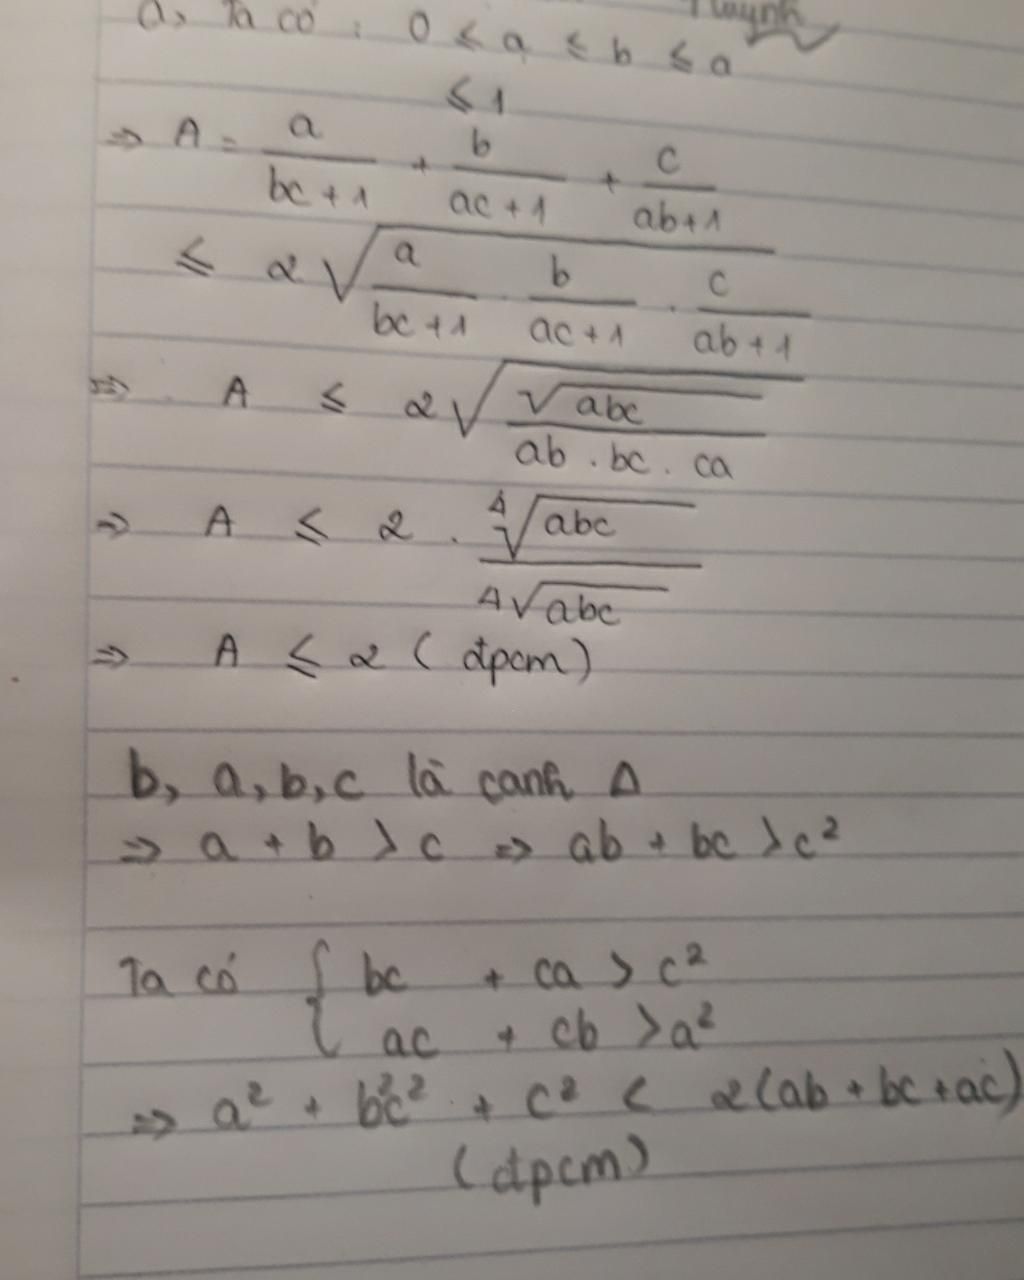 Huynh
a, Ta có : 0 ≤ a ≤ b ≤ a
≤ 1
⇒ A = a/(bc + 1) + b/(ac + 1) + c/(ab + 1)
≤ 2√(a/(bc + 1) · b/(ac + 1) · c/(ab + 1))
⇒ A ≤ 2√(√(abc)/(ab . bc . ca))
⇒ A ≤ 2 . ⁴√(abc)/⁴√(abc)
⇒ A ≤ 2 ( đpcm )
b, a, b, c là canh Δ
⇒ a + b > c ⇒ ab + bc > c²
Ta có { bc + ca > c²
ac + cb > a²
⇒ a² + b²c² + c² < 2(ab + bc + ac)
(đpcm)